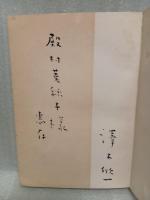 殿村菟絲子様
恵存
澤木欣一